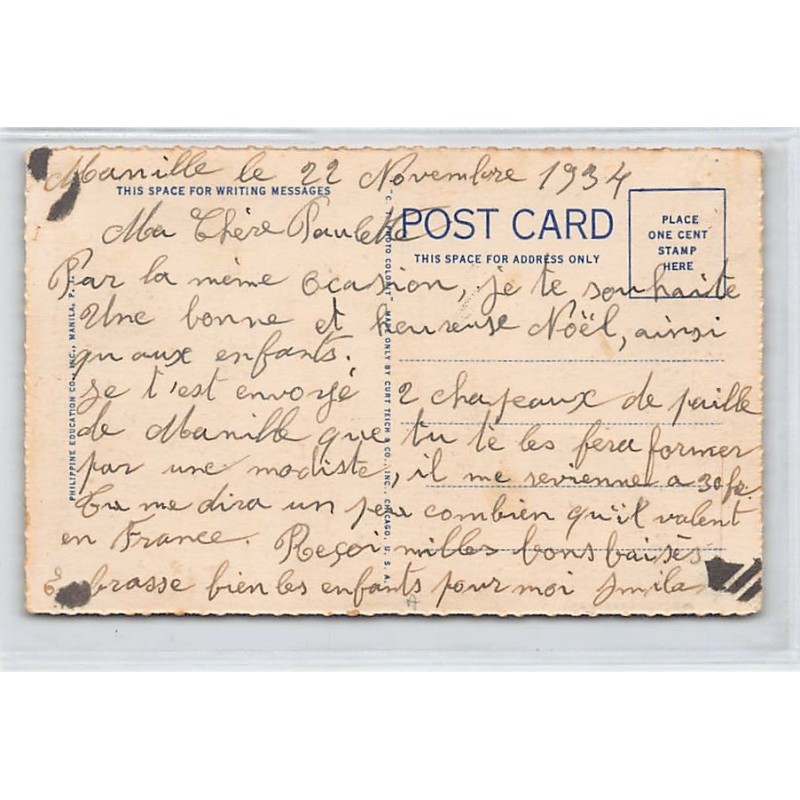 Manille le 22 Novembre 1934
THIS SPACE FOR WRITING MESSAGES
POST CARD
THIS SPACE FOR ADDRESS ONLY
PLACE
ONE CENT
STAMP
HERE
Ma Chère Paulette
Par la même Ocasion, je te souhaite
Une bonne et heureuse Noël, ainsi
qu aux enfants.
Je t'est envoyé 2 chapeaux de paille
de Manille que tu te les fera former
par une modiste, il me revienne a 30 fr.
Tu me dira un peu combien qu'il valent
en France. Reçoi milles bons baisés
Embrasse bien les enfants pour moi
PHILIPPINE EDUCATION CO., INC., MANILA, P. I.
MADE ONLY BY CURT TEICH & CO., INC., CHICAGO, U. S. A.